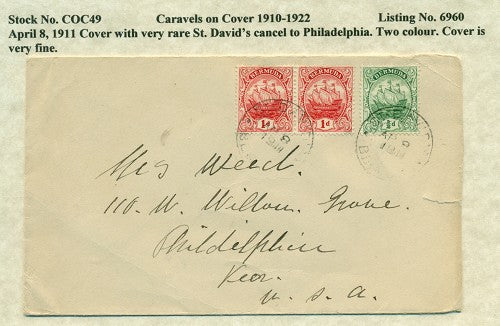 Stock No. COC49 Caravels on Cover 1910-1922 Listing No. 6960
April 8, 1911 Cover with very rare St. David's cancel to Philadelphia. Two colour. Cover is
very fine.
BERMUDA BERMUDA BERMUDA
1d 1d ½d
AP 8 AP 8
1911 1911
Mrs Weech.
110. W. Willow. Grove.
Phildelphia
U. S. A.